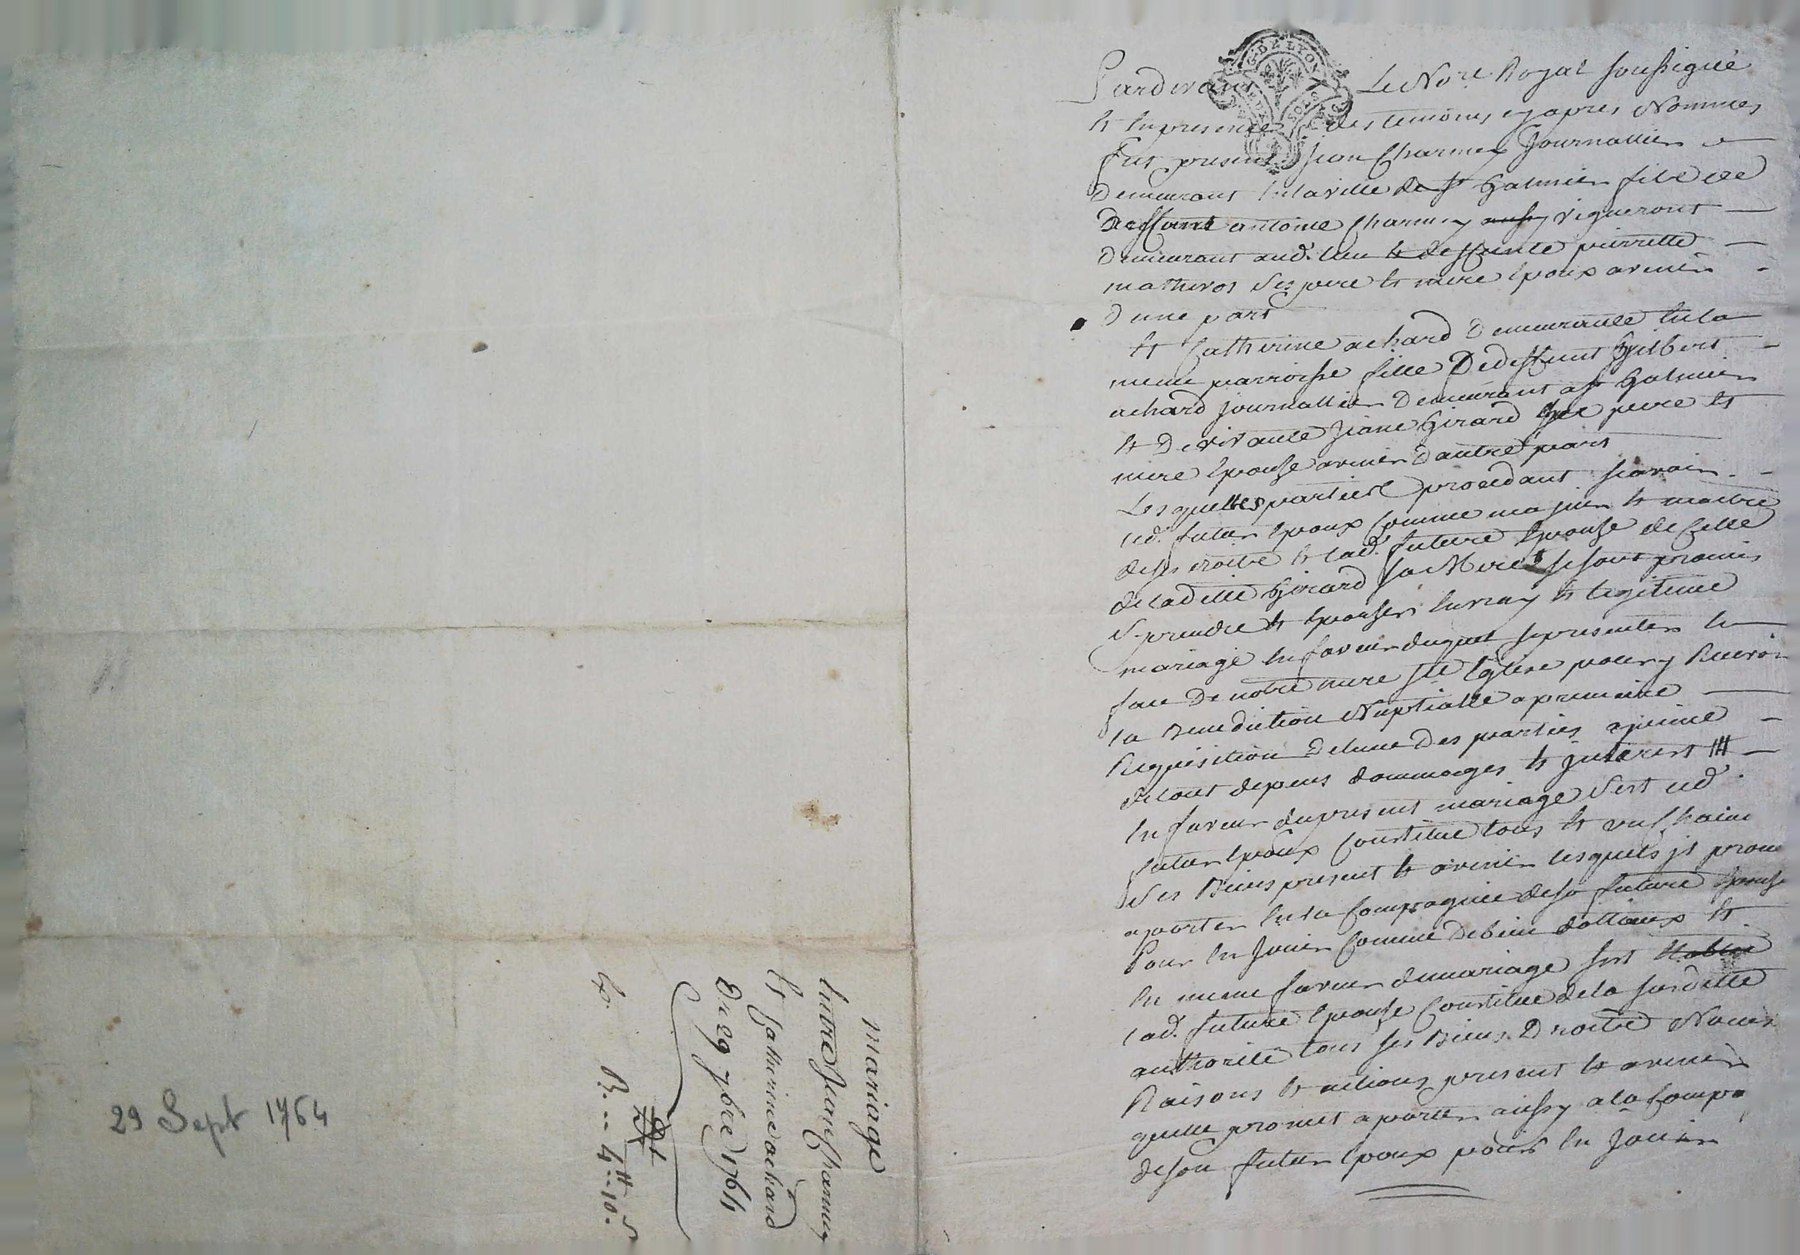 G. DE LYON
Pardevant Le No.re Royal soussigné
Et en presence des temoins cy apres Nommes
fut present Jean Charmey Journallier
Demeurant en la ville de St Galmier fils de
Deffunt antoine Charmey aussy vigneront
demeurant aud. lieu et deffunte pierrette
ses pere et mere Epoux avenir
d'une part
Et Catherine achard Demeurante en la
meme parroisse fille De deffunt Gilbert
achard journallier Demeurant a St Galmier
Et De vivante Jeane Girard ses pere et
mere Epouse avenir d'autre part
Lesquelles parties procedant scavoir
led. futur Epoux comme majeur et maitre
de ses droits et lad. future Epouse de celle
de ladite Girard sa Mere se sont promis
S'prendre et Epouser en vray et legitime
mariage en faveur duquel se presenter en
face De notre mere ste Eglise pour y Recevoir
la Benediction Nuptialle a premiere
Requisition De l'une Des parties a peine
de tout depens dommages et interest
En faveur du present mariage s'est led.
futur Epoux constitué tous et un chacun
ses Biens present et avenir lesquels il promet
aporter en la compagnie de sa future Epouse
Pour en Jouir comme De bien dottaux et
En meme faveur du mariage s'est
lad. future Epouse constitué de la susditte
authorité tous ses Biens Droits Noms
Raisons et actions present et avenir
quelle promet aporter aussy a la compa
de son futur Epoux pour en Jouir
mariage
Entre Jean Charmey
Et Catherine achard
Du 29 7bre 1764
29 Sept 1764